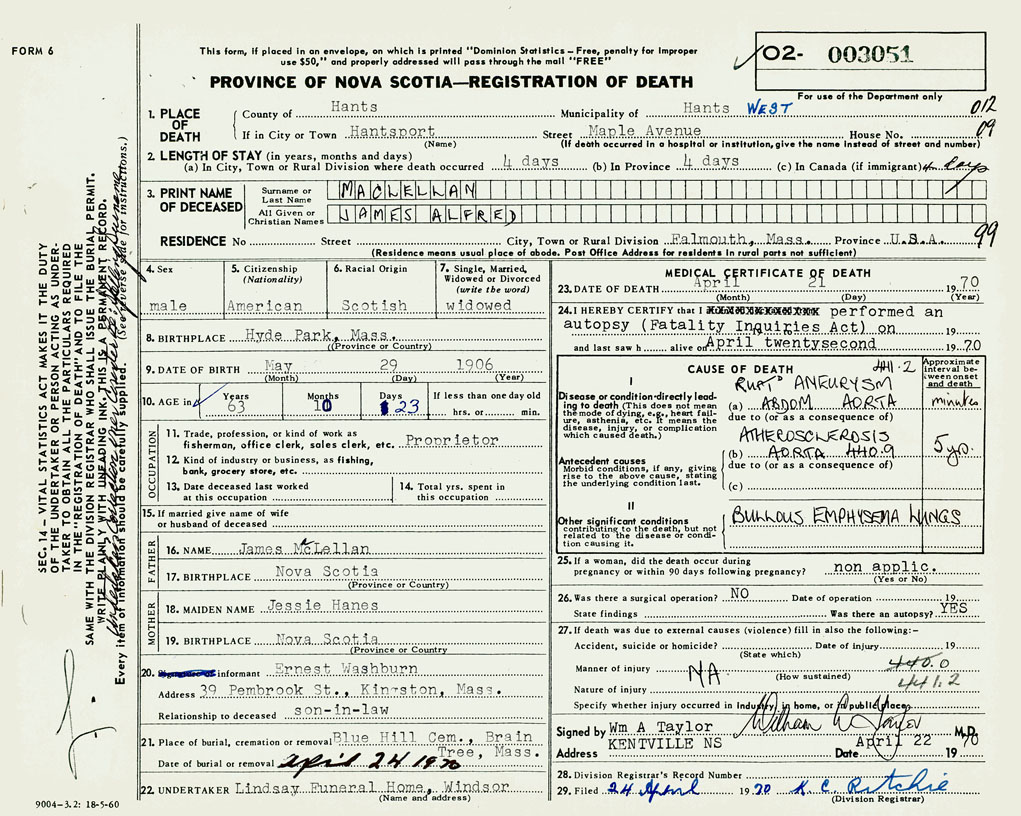 FORM 6
This form, if placed in an envelope, on which is printed "Dominion Statistics – Free, penalty for improper
use $50," and properly addressed will pass through the mail "FREE"
PROVINCE OF NOVA SCOTIA—REGISTRATION OF DEATH
02- 003051
For use of the Department only
012
09
1. PLACE OF DEATH
County of Hants Municipality of Hants WEST
If in City or Town Hantsport Street Maple Avenue House No.
(Name) (If death occurred in a hospital or institution, give the name instead of street and number)
2. LENGTH OF STAY (in years, months and days)
(a) In City, Town or Rural Division where death occurred 4 days (b) In Province 4 days (c) In Canada (if immigrant) 4 days
3. PRINT NAME OF DECEASED
Surname or Last Name MACLELLAN
All Given or Christian Names JAMES ALFRED
RESIDENCE No Street City, Town or Rural Division Falmouth, Mass. Province U.S.A. 99
(Residence means usual place of abode. Post Office Address for residents in rural parts not sufficient)
4. Sex
male
5. Citizenship (Nationality)
American
6. Racial Origin
Scotish
7. Single, Married, Widowed or Divorced (write the word)
widowed
8. BIRTHPLACE Hyde Park, Mass.
(Province or Country)
9. DATE OF BIRTH May 29 1906
(Month) (Day) (Year)
10. AGE in Years Months Days If less than one day old
63 10 23 hrs. or min.
OCCUPATION
11. Trade, profession, or kind of work as
fisherman, office clerk, sales clerk, etc. Proprietor
12. Kind of industry or business, as fishing,
bank, grocery store, etc.
13. Date deceased last worked
at this occupation
14. Total yrs. spent in
this occupation
15. If married give name of wife
or husband of deceased
FATHER
16. NAME James McLellan
17. BIRTHPLACE Nova Scotia
(Province or Country)
MOTHER
18. MAIDEN NAME Jessie Hanes
19. BIRTHPLACE Nova Scotia
(Province or Country
20. informant Ernest Washburn
Address 39 Pembrook St., Kingston, Mass.
Relationship to deceased son-in-law
21. Place of burial, cremation or removal Blue Hill Cem., Brain
Tree, Mass.
Date of burial or removal April 24 1970
22. UNDERTAKER Lindsay Funeral Home, Windsor
(Name and address)
MEDICAL CERTIFICATE OF DEATH
23. DATE OF DEATH April 21 1970
(Month) (Day) (Year)
24. I HEREBY CERTIFY that I performed an
autopsy (Fatality Inquiries Act) on 19
and last saw h alive on April twentysecond 1970
CAUSE OF DEATH 441.2
Approximate interval between onset and death
I
Disease or condition directly leading to death (This does not mean the mode of dying, e.g., heart failure, asthenia, etc. It means the disease, injury, or complication which caused death.)
RUPT'D ANEURYSM
(a) ABDOM AORTA minutes
due to (or as a consequence of)
Antecedent causes
Morbid conditions, if any, giving rise to the above cause, stating the underlying condition last.
ATHEROSCLEROSIS
(b) AORTA 440.9 5 yrs.
due to (or as a consequence of)
(c)
II
Other significant conditions
contributing to the death, but not related to the disease or condition causing it.
BULLOUS EMPHYSEMA LUNGS
25. If a woman, did the death occur during
pregnancy or within 90 days following pregnancy? non applic.
(Yes or No)
26. Was there a surgical operation? NO Date of operation 19
State findings Was there an autopsy? YES
27. If death was due to external causes (violence) fill in also the following:–
Accident, suicide or homicide? Date of injury 19
(State which)
Manner of injury 440.0
NA (How sustained) 441.2
Nature of injury
Specify whether injury occurred in Industry, in home, or in public place
Signed by Wm A Taylor William A Taylor M.D.
Address KENTVILLE NS Date April 22 1970
28. Division Registrar's Record Number
29. Filed 24 April 1970 K. C. Ritchie
(Division Registrar)
SEC. 14 – VITAL STATISTICS ACT MAKES IT THE DUTY
OF THE UNDERTAKER OR PERSON ACTING AS UNDER-
TAKER TO OBTAIN ALL THE PARTICULARS REQUIRED
IN THE "REGISTRATION OF DEATH" AND TO FILE THE
SAME WITH THE DIVISION REGISTRAR WHO SHALL ISSUE THE BURIAL PERMIT.
WRITE PLAINLY WITH UNFADING INK, THIS IS A PERMANENT RECORD.
Every item of information should be carefully supplied. (See reverse side for instructions.)
9004-3.2: 18-5-60